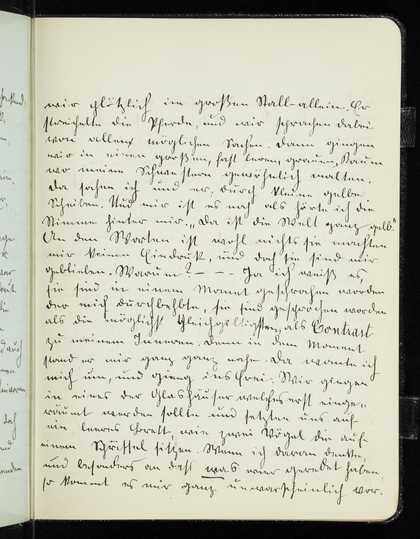 wir plötzlich im großen Stall allein. Er
streichelte die Pferde, und wir sprachen dabei
von allen möglichen Sachen. Dann gingen
wir in einen großen, fast leeren, grauen, Raum
wo meine Schwestern gewöhnlich malten.
Da sahen ich und er, durch kleine gelbe
Scheiben. Und mir ist es noch als hörte ich die
Stimme hinter mir. „Da ist die Welt ganz gelb."
An den Worten ist wohl nichts sie machten
mir keinen Eindruck, und doch sie sind mir
geblieben. Warum? – – – Ja ich weiß es,
sie sind in einem Moment gesprochen worden
der mich durchbebte, sie sind gesprochen worden
als die möglichst Gleichgültigsten, als Contrast
zu meinem Inneren. Denn in dem Moment
stand er mir ganz ganz nahe. Da wandte ich
mich um, und gieng ins Freie. Wir giengen
in eines der Glashäuser welches erst einge-
räumt werden sollte und setzten uns auf
ein leeres Brett, wie zwei Vögel die auf
einem sitzen. Wenn ich daran denke,
und besonders an das was wir geredet haben,
so kommt es mir ganz unwarscheinlich vor.